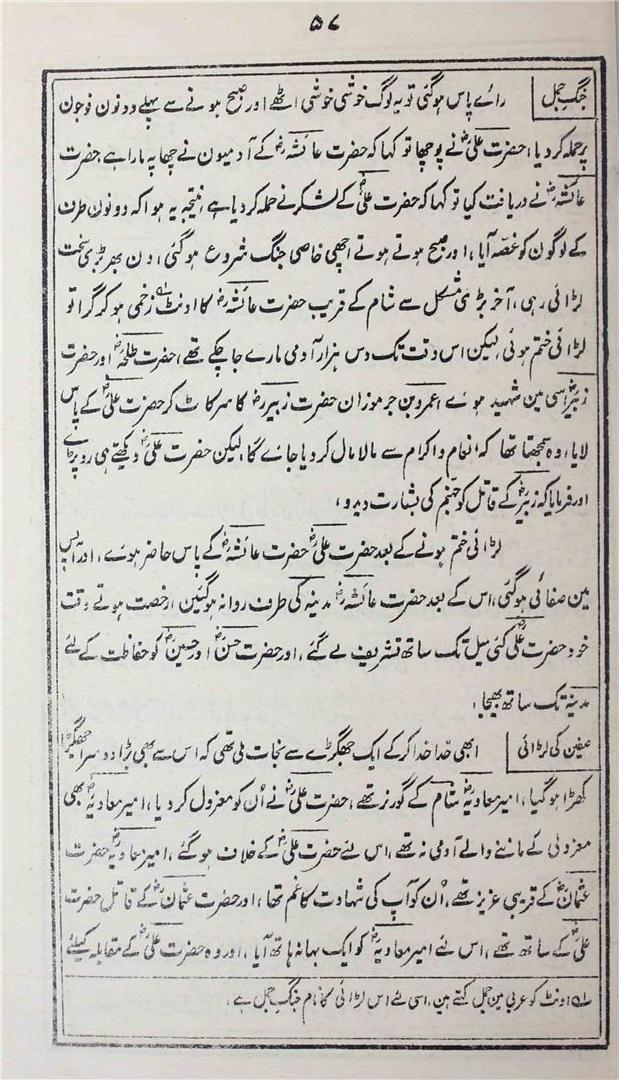 ۵۷
جنگ جمل راے پاس ہوگئی تو یہ لوگ خوشی خوشی اٹھے اور صبح ہونے سے پہلے دونون فوجون
پر حملہ کردیا، حضرت علیؓ نے پوچھا تو کہا کہ حضرت عائشہؓ کے آدمیون نے چھاپہ مارا ہے، حضرت
عائشہؓ نے دریافت کیا تو کہا کہ حضرت علیؓ کے لشکر نے حملہ کردیا ہے، نتیجہ یہ ہوا کہ دونون طرف
کے لوگون کو غصہ آیا، اور صبح ہوتے ہوتے اچھی خاصی جنگ شروع ہوگئی، دن بھر بڑی سخت
لڑائی رہی، آخر بڑی مشکل سے شام کے قریب حضرت عائشہؓ کا اونٹ۱؎ زخمی ہوکر گرا تو
لڑائی ختم ہوئی، لیکن اس وقت تک دس ہزار آدمی مارے جاچکے تھے، حضرت طلحہؓ اور حضرت
زبیرؓ اسی مین شہید ہوے، عمرو بن جرموزان حضرت زبیرؓ کا سر کاٹ کر حضرت علیؓ کے پاس
لایا، وہ سمجھتا تھا کہ انعام و اکرام سے مالا مال کردیا جاے گا، لیکن حضرت علیؓ دیکھتے ہی رو پڑے
اور فرمایا کہ زبیرؓ کے قاتل کو جہنم کی بشارت دیدو،
لڑائی ختم ہونے کے بعد حضرت علیؓ حضرت عائشہؓ کے پاس حاضر ہوے، اور آپس
مین صفائی ہوگئی، اس کے بعد حضرت عائشہؓ مدینہ کی طرف روانہ ہوگئین، رخصت ہوتے وقت
خود حضرت علیؓ کئی میل تک ساتھ تشریف لے گئے، اور حضرت حسنؓ اور حسینؓ کو حفاظت کے لئے
مدینہ تک ساتھ بھیجا،
صفین کی لڑائی ابھی خدا خدا کرکے ایک جھگڑے سے نجات ملی تھی کہ اس سے بھی بڑا دوسرا جھگڑا
کھڑا ہوگیا، امیر معاویہؓ شام کے گورنر تھے، حضرت علیؓ نے اُن کو معزول کردیا، امیر معاویہؓ بھی
معزولی کے ماننے والے آدمی نہ تھے، اس لئے حضرت علیؓ کے خلاف ہوگئے، امیر معاویہؓ حضرت
عثمانؓ کے قریبی عزیز تھے، اُن کو آپ کی شہادت کا غم تھا، اور حضرت عثمانؓ کے قاتل حضرت
علیؓ کے ساتھ تھے، اس لئے امیر معاویہؓ کو ایک بہانہ ہاتھ آیا، اور وہ حضرت علیؓ کے مقابلہ کیلئے
۱؎ اونٹ کو عربی مین جمل کہتے ہین، اسی لئے اس لڑائی کا نام جنگ جمل ہے،